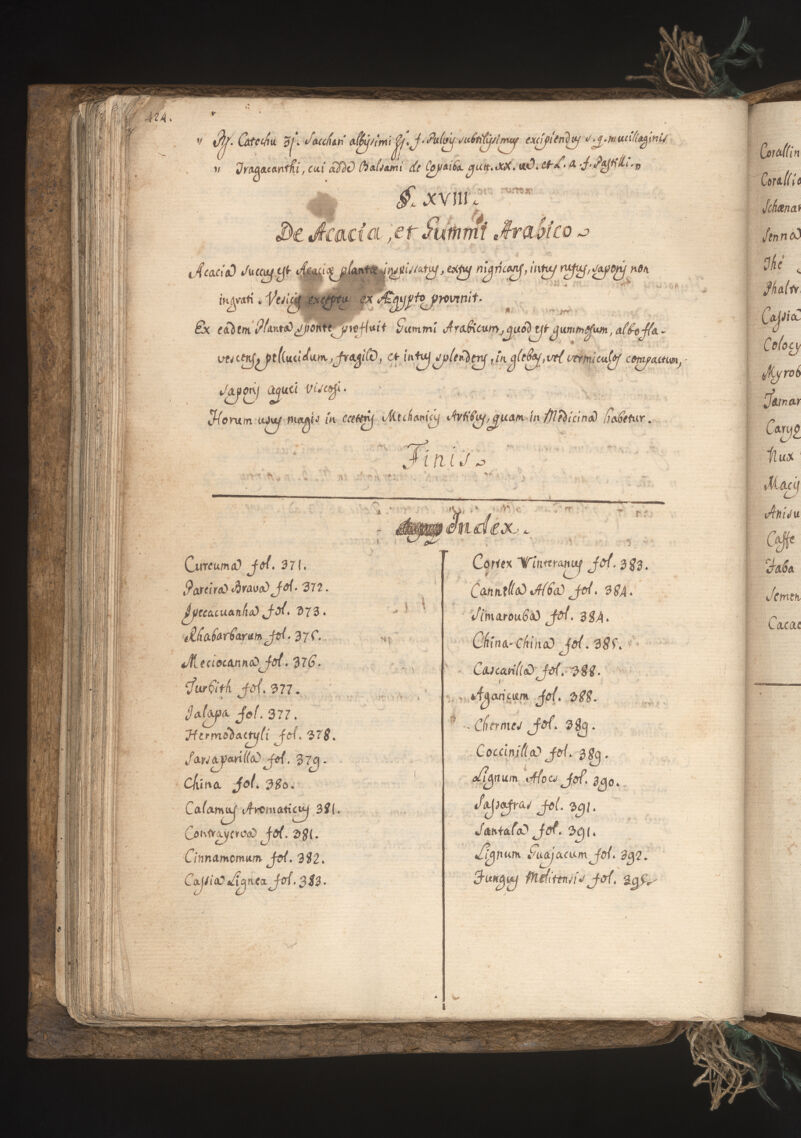 424.
" ℞. Catechu ʒj. Sacchari albissimi ℥j. f. Pulvis subtilissimus excipiendus s. q. mucillaginis
" Tragacanthi, cui adde Balsami de Copaiba gutt. xx. et L. a f. Pastilli. "
§. XVIII.
De Acacia, et Gummi Arabico
Acacia Succus est Acaciæ plantæ inspissatus, extus nigricans, intus rufus, saporis non
ingrati. Vesicis exceptus ex Ægypto provenit.
Ex eadem Planta sponte profluit Gummi Arabicum, quod est gummosum, albo fla-
vescens, pellucidum, fragile, et intus splendens, in glebas, vel vermiculos compactum,
saporis aquei viscosi.
Horum usus magis in ceteris Mechanicis Artibus, quam in Medicina habetur.
Finis
Index.
Curcuma fol. 371.
Pareira Brava fol. 372.
Ipecacuanha fol. 373.
Rhabarbarum fol. 375.
Meciocanna fol. 376.
Turbith fol. 377.
Jalapa fol. 377.
Hermodactyli fol. 378.
Sarsaparilla fol. 379.
China fol. 380.
Calamus Aromaticus 381.
Contrayerva fol. 381.
Cinnamomum fol. 382.
Cassia Lignea fol. 383.
Cortex Winteranus fol. 383.
Cannella Alba fol. 384.
Simarouba fol. 384.
China-China fol. 385.
Cascarilla fol. 388.
Agaricum fol. 388.
Chermes fol. 389.
Coccinilla fol. 389.
Lignum Aloes fol. 390.
Sassafras fol. 391.
Santala fol. 391.
Lignum Guajacum fol. 392.
Fungus Melitensis fol. 395.
Corallin
Corallia
Schœna
Senna
Thé
Phaltr
Cassia
Colocy
Myrob
Tamar
Caryo
Nux
Macis
Anisu
Caffe
Faba
Semen
Cacao